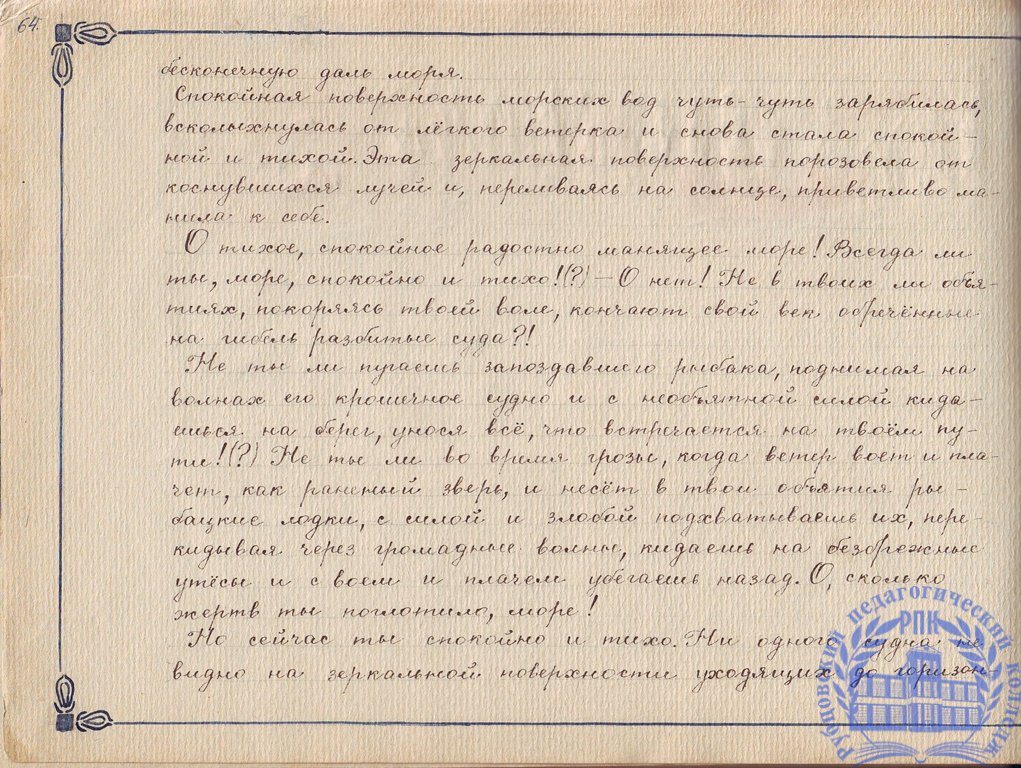 64.
бесконечную даль моря.
Спокойная поверхность морских вод чуть-чуть зарябилась,
всколыхнулась от лёгкого ветерка и снова стала спокой-
ной и тихой. Эта зеркальная поверхность порозовела от
коснувшихся лучей и, переливаясь на солнце, приветливо ма-
нила к себе.
О тихое, спокойное радостно манящее море! Всегда ли
ты, море, спокойно и тихо!(?) – О нет! Не в твоих ли объя-
тиях, покоряясь твоей воле, кончают свой век обречённые
на гибель разбитые суда?!
Не ты ли пугаешь запоздавшего рыбака, поднимая на
волнах его крошечное судно и с необъятной силой кида-
ешься на берег, унося всё, что встречается на твоём пу-
ти!(?) Не ты ли во время грозы, когда ветер воет и пла-
чет, как раненый зверь, и несёт в твои объятия ры-
бацкие лодки, с силой и злобой подхватываешь их, пере-
кидывая через громадные волны, кидаешь на безбрежные
утёсы и с воем и плачем убегаешь назад. О, сколько
жертв ты поглотило, море!
Но сейчас ты спокойно и тихо. Ни одного судна не
видно на зеркальной поверхности уходящих до горизон-
Рубцовский педагогический колледж
РПК